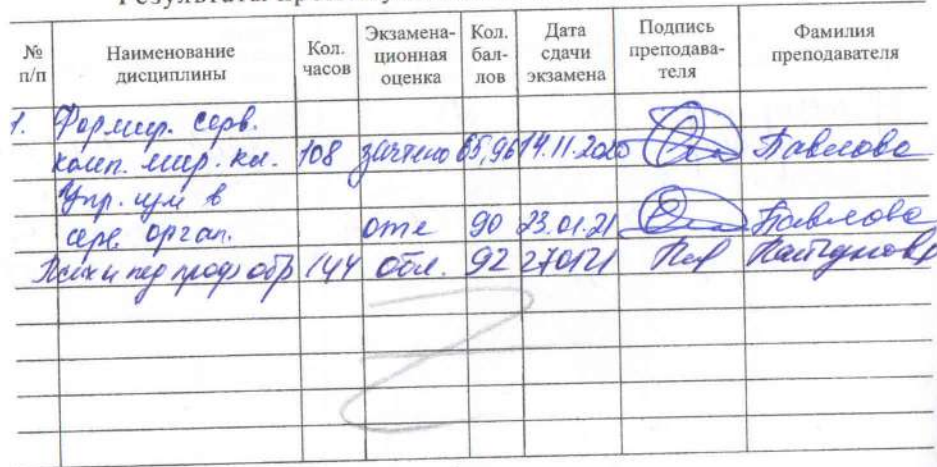 № п/п Наименование дисциплины Кол. часов Экзамена-ционная оценка Кол. бал-лов Дата сдачи экзамена Подпись преподава-теля Фамилия преподавателя
1. Формир. серв.
комп. мир. кл. 108 зачтено 65,96 14.11.2020 Павлова
Упр. изм в
серв. орган. отл 90 23.01.21 Павлова
Псих и пед проф обр 144 отл. 92 270121